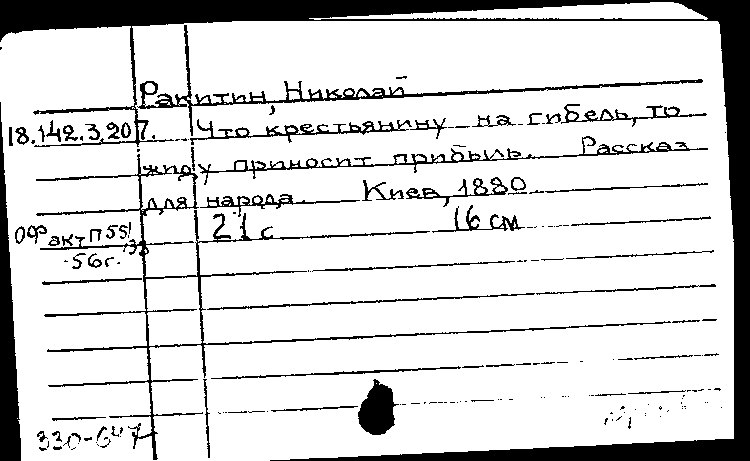 Ракитин, Николай
18.142.3.207. Что крестьянину на гибель, то
жиду приносит прибыль. Рассказ
для народа. Киев, 1880
21 с 16 см
ОФ акт П 551
56г.
330-647